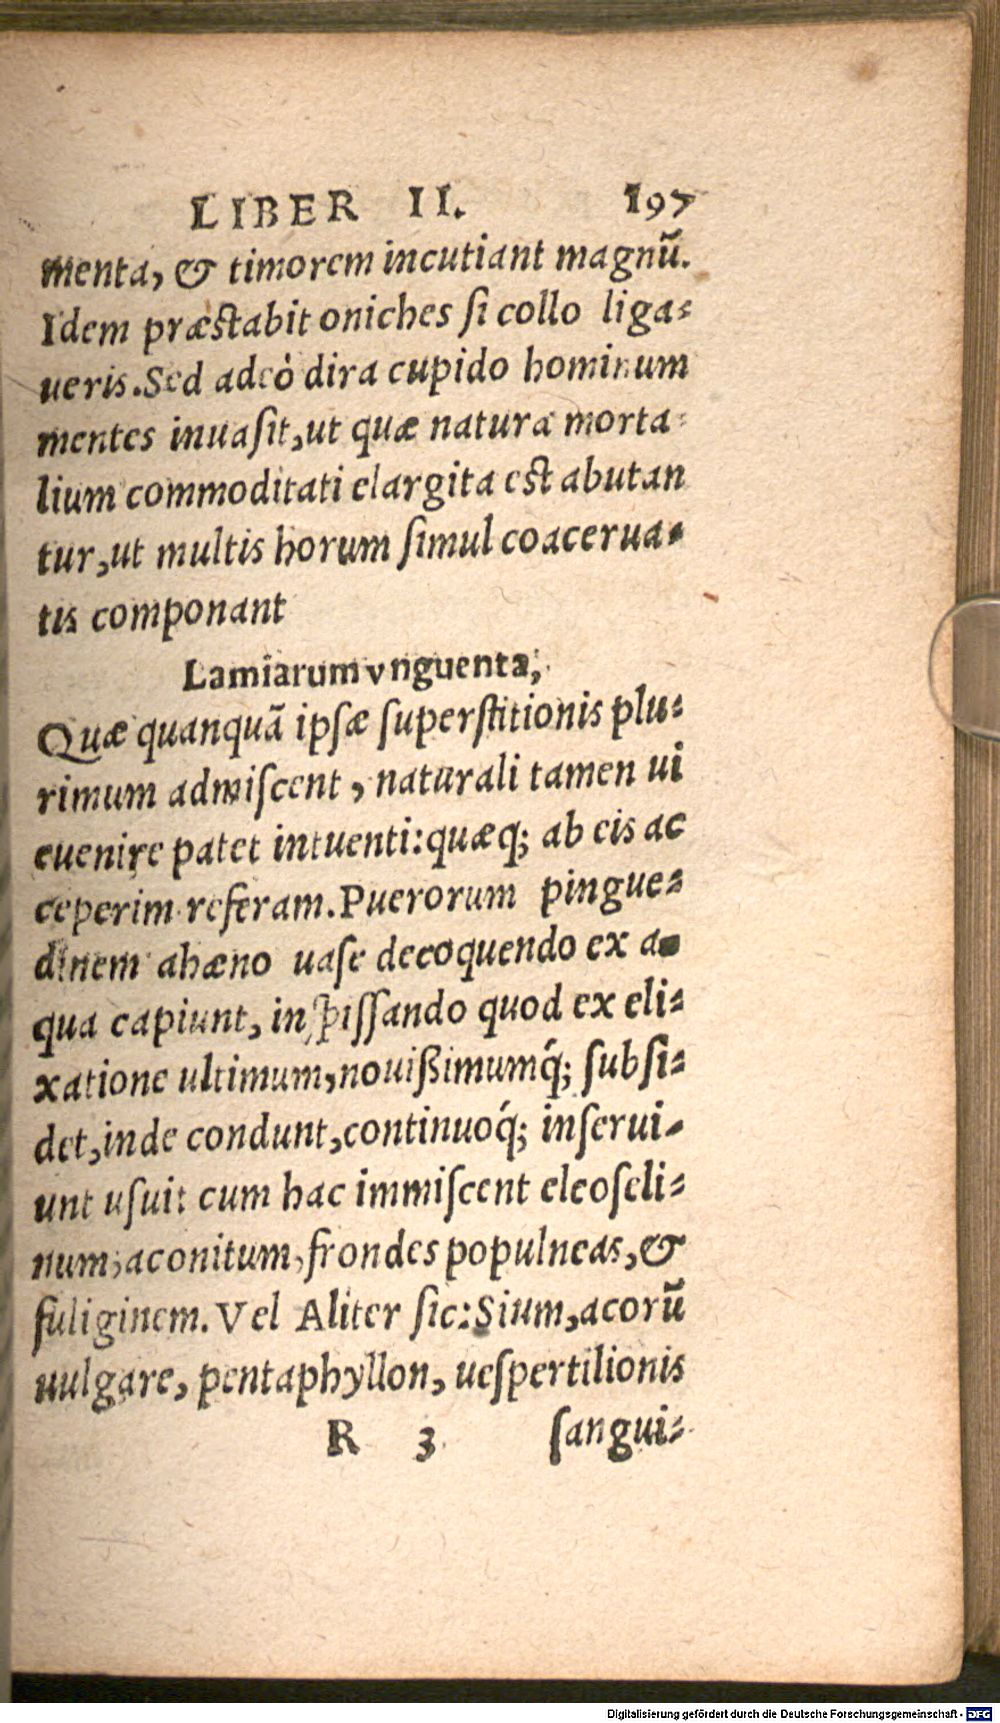 LIBER II. 197
menta, & timorem incutiant magnū.
Idem præstabit oniches si collo liga-
ueris. Sed adeò dira cupido hominum
mentes inuasit, ut quæ natura morta
lium commoditati elargita est abutan
tur, ut multis horum simul coacerua-
tis componant
Lamiarum vnguenta,
Quæ quanquã ipsæ superstitionis plu-
rimum admiscent, naturali tamen ui
euenire patet intuenti: quæq; ab eis ac
ceperim referam. Puerorum pingue-
dinem ahæno uase decoquendo ex a-
qua capiunt, inspissando quod ex eli-
xatione ultimum, nouißimumq́; subsi-
det, inde condunt, continuoq́; inserui-
unt usui: cum hac immiscent eleoseli-
num, aconitum, frondes populneas, &
fuliginem. Vel Aliter sic: Sium, acorū
uulgare, pentaphyllon, uespertilionis
R 3 sangui-
Digitalisierung gefördert durch die Deutsche Forschungsgemeinschaft - DFG